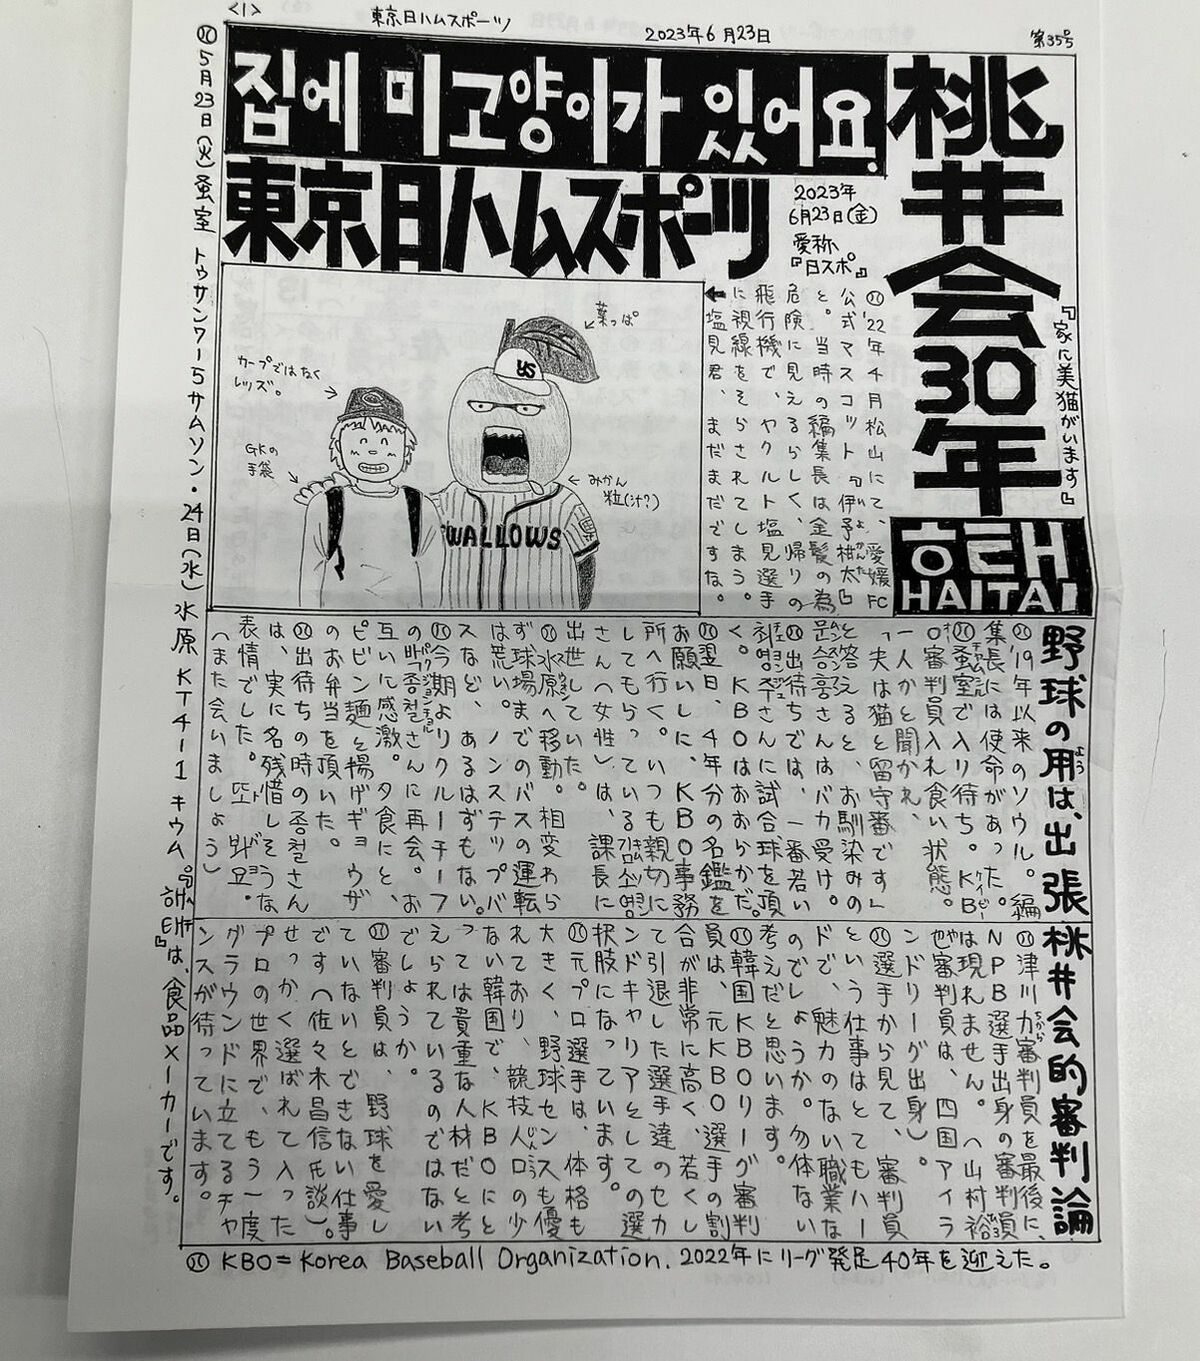 <1>
東京日ハムスポーツ
2023年6月23日
第35号
桃井会30年
『家に美猫がいます』
해태
HAITAI
집에 미고양이가 있어요.
東京日ハムスポーツ
2023年
6月23日(金)
愛称
『日スポ』
'22年4月松山にて、愛媛FC
公式マスコット『伊予柑太』
と。当時の編集長は金髪の為
危険に見えるらしく、帰りの
飛行機で、ヤクルト塩見選手
に視線をそらされてしまう。
塩見君、まだまだですな。
葉っぱ
カープではなく
レッズ。
GKの
手袋
みかん
粒(汁?)
YS
C
WALLOWS
野球の用は、出張
'19年以来のソウル。編
集長には使命があった。
蚕室で入り待ち。KB
O審判員入れ食い状態。
一人かと聞かれ、
「夫は猫と留守番です」
と答えると、お馴染みの
さんはバカ受け。
出待ちでは、一番若い
さんに試合球を頂
く。KBOはおおらかだ。
翌日、4年分の名鑑を
お願いしに、KBO事務
所へ行く。いつも親切に
してもらっている
さん(女性)は、課長に
出世していた。
水原へ移動。相変わら
ず球場までのバスの運転
は荒い。ノンステップバ
スなど、あるはずもない。
今期よりクルーチーフ
の박종철さんに再会。お
互いに感激。夕食にと、
ビビン麺と揚げギョウザ
のお弁当を頂いた。
出待ちの時の종철さん
は、実に名残惜しそうな
表情でした。또 봐요.
(また会いましょう)
桃井会的審判論
津川力審判員を最後に、
NPB選手出身の審判員
は現れません。(山村裕
也審判員は、四国アイラ
ンドリーグ出身)。
選手から見て、審判員
という仕事はとてもハー
ドで、魅力のない職業な
のでしょうか。勿体ない
考えだと思います。
韓国KBOリーグ審判
員は、元KBO選手の割
合が非常に高く、若くし
て引退した選手達のセカ
ンドキャリアとしての選
択肢になっています。
元プロ選手は、体格も
大きく、野球センスも優
れており、競技人口の少
ない韓国で、KBOにと
っては貴重な人材だと考
えられているのではない
でしょうか。
審判員は、野球を愛し
ていないとできない仕事
です(佐々木昌信氏談)。
せっかく選ばれて入った
プロの世界で、もう一度
グラウンドに立てるチャ
ンスが待っています。
5月23日(火)蚕室 トゥサンワー5サムソン・24日(水)水原 KT4ー1キウム。
『해태』は、食品メーカーです。
KBO=Korea Baseball Organization. 2022年にリーグ発足40年を迎えた。